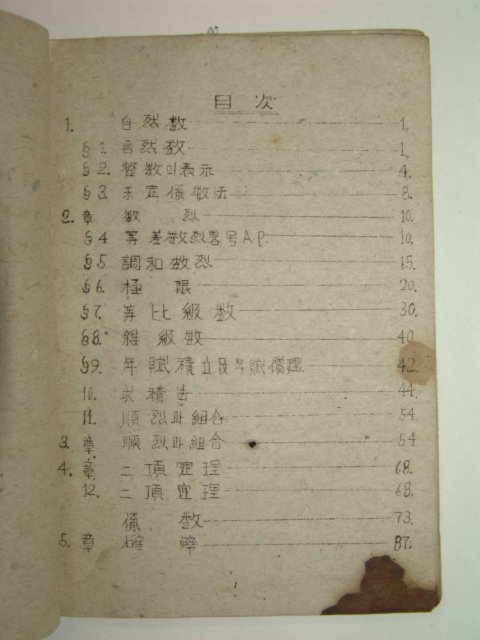 目次
1. 自然数 1.
§1. 自然数 1.
§2. 整数의表示 4.
§3. 未定係数法 8.
2. 章 数烈 10.
§4 等差数烈畧号A.P. 10.
§5 調和数烈 15.
§6. 極限 20.
§7. 等比級数 30.
§8. 雜級数 40
§9. 年賦積立及年賦償還 42
10. 求積法 44.
11. 順烈과組合 54.
3. 章. 順烈과組合 54
4. 章. 二項定理 68.
12. 二項定理 68.
係数 73.
5. 章 確率 87.
1